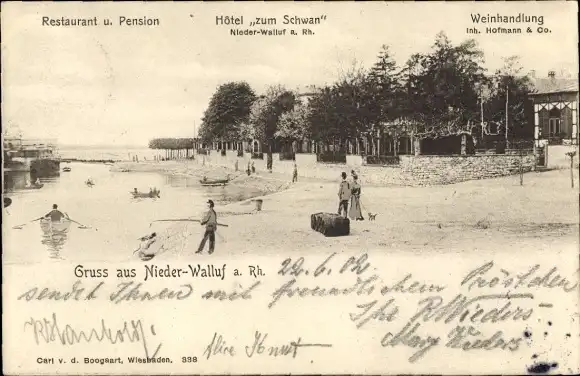 Restaurant u. Pension
Hôtel „zum Schwan"
Nieder-Walluf a. Rh.
Weinhandlung
Inh. Hofmann & Co.
Gruss aus Nieder-Walluf a. Rh.
22.6.02
sendet Ihnen mit freundlichem Pröstchen
Ihr R Wieders
Mary Wieders
Alice Knut
Carl v. d. Boogaart, Wiesbaden. 338